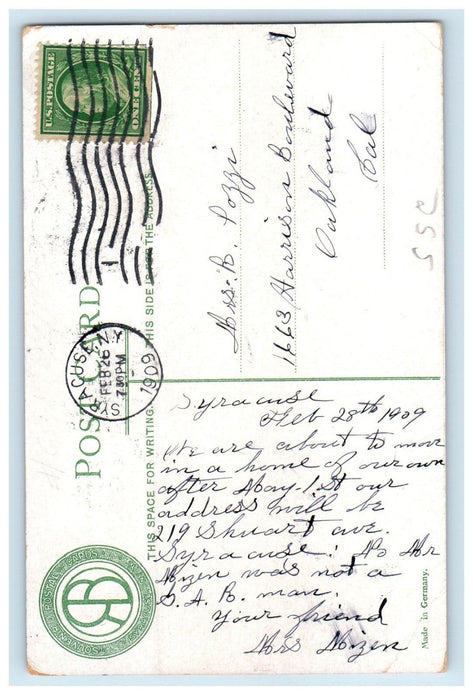 U.S. POSTAGE
ONE CENT
SYRACUSE, N.Y.
FEB 26
7 30 PM
1909
POST CARD
THIS SPACE FOR WRITING.
THIS SIDE IS FOR THE ADDRESS
Mrs. R. Pozzi
1663 Harrison Boulevard
Oakland
Cal
SSC
Syracuse
Feb 28th 1909
We are about to move
in a home of our own
after May-1st our
address will be
219 Stuart ave.
Syracuse. No Mr
Mizen was not a
G. A. R. man.
Your friend
Mrs Mizen
Made in Germany.